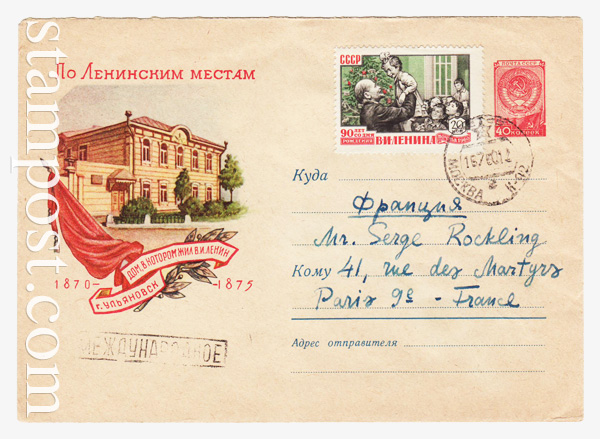 stampost.com
По Ленинским местам
1870-
-1875
ДОМ, В КОТОРОМ ЖИЛ В.И.ЛЕНИН
г. УЛЬЯНОВСК
МЕЖДУНАРОДНОЕ
СССР
90 ЛЕТ СО ДНЯ
РОЖДЕНИЯ
В.И.ЛЕНИНА
ПОЧТА СССР
40 КОПЕЕК
МОСКВА
Куда
Франция
Mr. Serge Rockling
Кому 41, rue des Martyrs
Paris 9e - France
Адрес отправителя